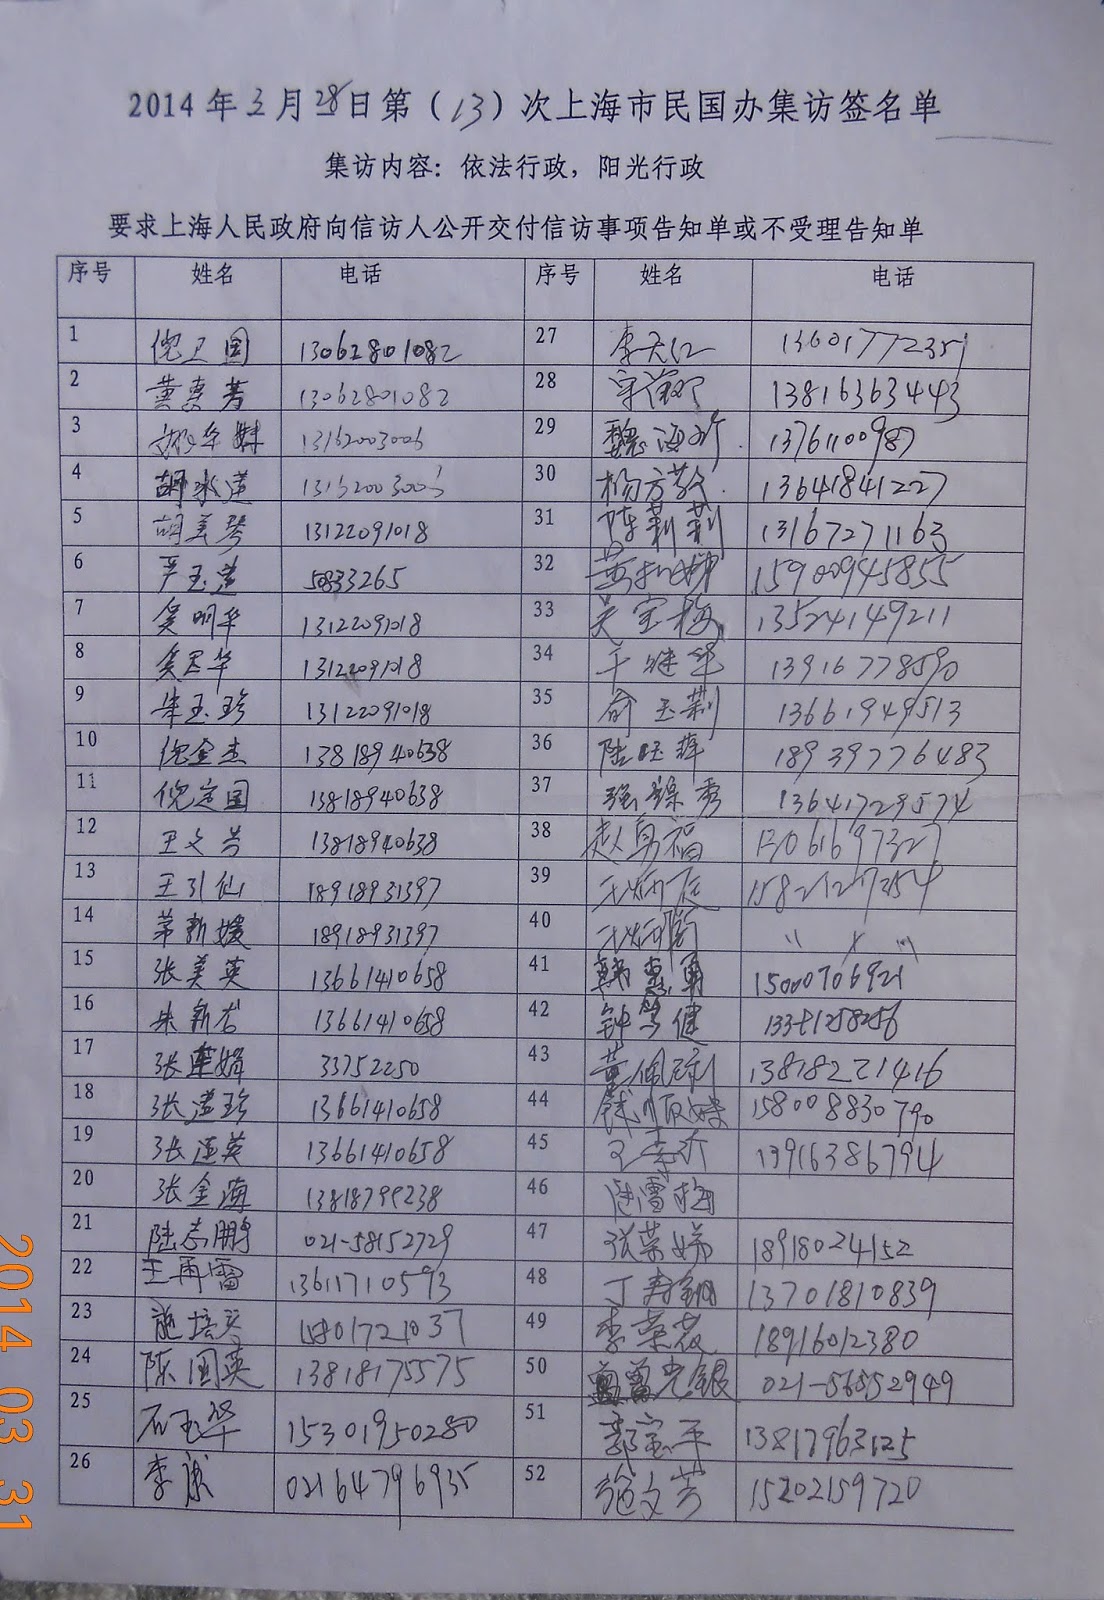 2014年3月28日第（13）次上海市民国办集访签名单
集访内容：依法行政，阳光行政
要求上海人民政府向信访人公开交付信访事项告知单或不受理告知单
序号 姓名 电话 序号 姓名 电话
1 倪卫国 13062801082 27 13601772351
2 黄惠芳 13062801082 28 13816363443
3 13162003006 29 魏海珍 13761100987
4 胡水莲 13162003006 30 杨方敏 13641841227
5 胡美琴 13122091018 31 陈莉莉 13167271163
6 严玉莲 50833265 32 15900945855
7 吴明华 13122091018 33 吴宝梅 13524149211
8 13122091018 34 13916778590
9 朱玉珍 13122091018 35 俞玉莉 13661949513
10 倪金杰 13818940638 36 陆旺萍 18939776483
11 倪定国 13818940638 37 13641729574
12 王文芳 13818940638 38 赵勇福 13061697327
13 王引仙 18918931397 39
14 茅新媛 18918931397 40
15 张美英 13661410658 41 15000706921
16 朱新杏 13661410658 42
17 张娟 33752250 43 13818221416
18 张莲珍 13661410658 44 钱顺娣 15800883090
19 张莲英 13661410658 45 13916386794
20 张金海 13818799238 46 陆雷梅
21 陆志鹏 021-58152729 47 张荣娣 18918024152
22 王再雷 13611710593 48 13701810839
23 施培 49 18916012380
24 陈国英 13818175575 50 021-56552949
25 石玉华 15301950280 51 郭宝平 13817963125
26 李 02164796935 52 施文芳 15202159720
2014 03 31